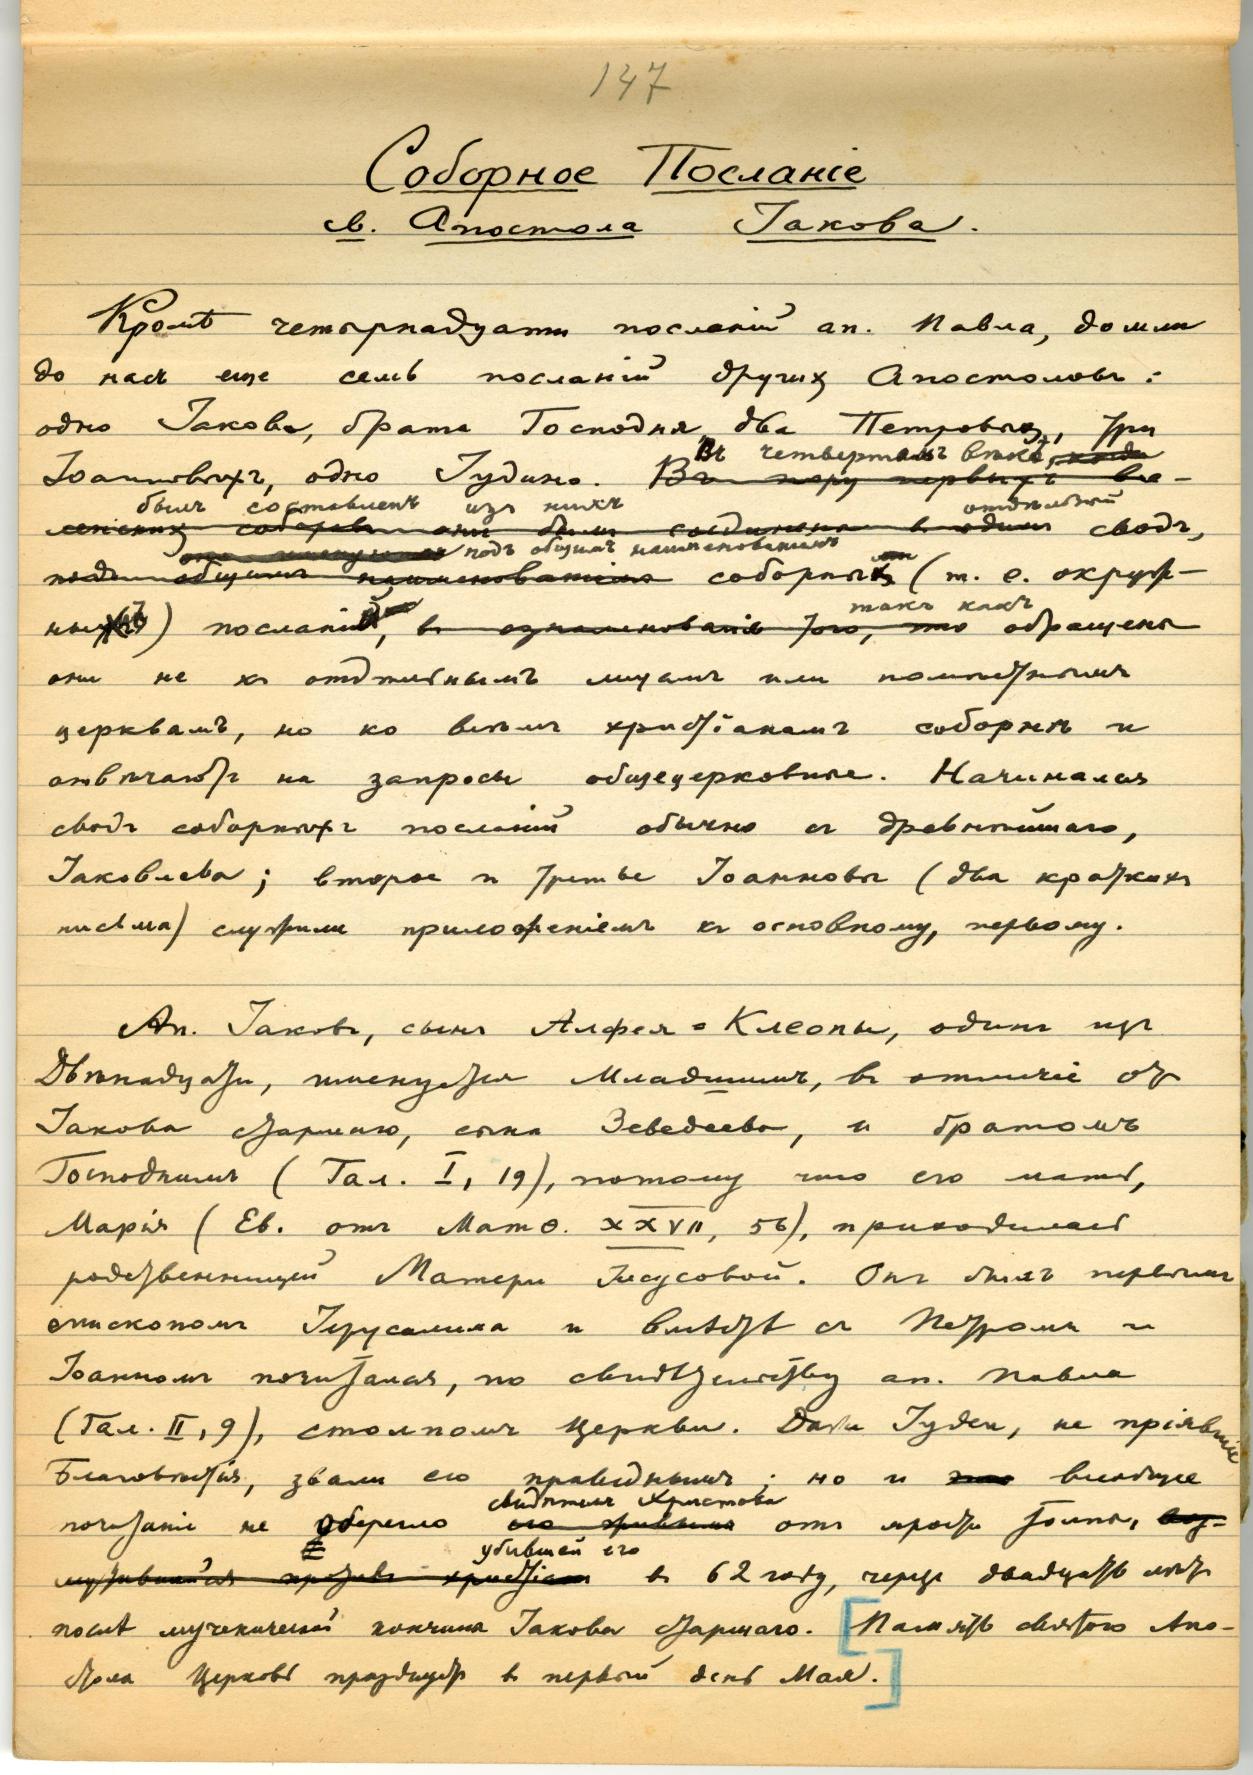 147
Соборное Посланіе
св. Апостола Іакова.
Кромѣ четырнадцати посланій ап. Павла, дошли
до насъ еще семь посланій другихъ Апостоловъ:
одно Іакова, брата Господня, два Петровыхъ, три
Въ четвертомъ вѣкѣ, когда
Іоанновыхъ, одно Іудино. Въ пору первыхъ все-
былъ составленъ изъ нихъ отдѣльный
ленскихъ соборовъ они были соединены въ одинъ сводъ,
подъ общимъ наименованіемъ
подъ общимъ наименованіемъ соборныхъ (т. е. окруж-
такъ какъ
ныхъ) посланій, въ ознаменованіе того, что обращены
они не къ отдѣльнымъ лицамъ или помѣстнымъ
церквамъ, но ко всѣмъ христіанамъ соборнѣ и
отвѣчаютъ на запросы общецерковные. Начинался
сводъ соборныхъ посланій обычно съ древнѣйшаго,
Іаковлева; второе и третье Іоанновы (два краткихъ
письма) служили приложеніемъ къ основному, первому.
Ап. Іаковъ, сынъ Алфея-Клеопы, одинъ изъ
Двѣнадцати, именуется Младшимъ, въ отличіе отъ
Іакова старшаго, сына Зеведеева, и братомъ
Господнимъ (Гал. I, 19), потому что его мать,
Марія (Ев. отъ Матѳ. XXVII, 56), приходилась
родственницей Матери Іисусовой. Онъ былъ первымъ
епископомъ Іерусалима и вмѣстѣ съ Петромъ и
Іоанномъ почитался, по свидѣтельству ап. Павла
(Гал. II, 9), столпомъ Церкви. Даже Іудеи, не пріявшіе
Благовѣстія, звали его праведнымъ; но и всеобщее
свидѣтеля Христова
почитаніе не уберегло его отъ ярости толпы, воз-
убившей его
мутившейся противъ христіанъ въ 62 году, черезъ двадцать лѣтъ
послѣ мученической кончины Іакова старшаго. [Память святого Апо-
стола Церковь празднуетъ въ первый день Мая.]